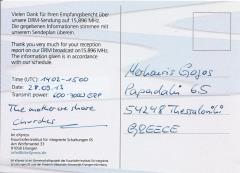 Vielen Dank für Ihren Empfangsbericht über
unsere DRM-Sendung auf 15,896 MHz.
Die gegebenen Informationen stimmen mit
unserem Sendeplan überein.
Thank you very much for your reception
report on our DRM broadcast on 15,896 MHz.
The information given is in accordance
with our schedule.
Time (UTC): 1402-1500
Date: 28.09.13
Transmit power: 600-3000 ERP
The mother we share
Chvrches
bit eXpress
Fraunhofer Institut für Integrierte Schaltungen IIS
Am Wolfsmantel 33
91058 Erlangen
Papadaki 65
54248 Thessaloniki
GREECE